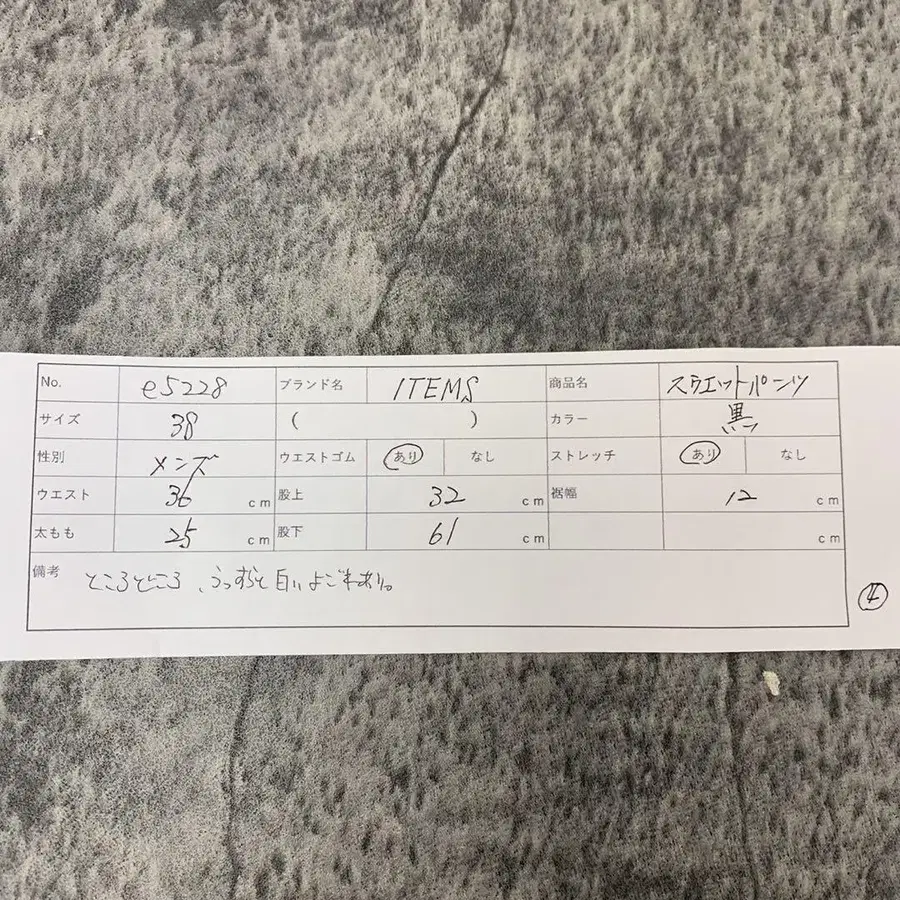 No. e5228 ブランド名 ITEMS 商品名 スウェットパンツ
サイズ 38 ( ) カラー 黒
性別 メンズ ウエストゴム あり なし ストレッチ あり なし
ウエスト 36 cm 股上 32 cm 裾幅 12 cm
太もも 25 cm 股下 61 cm cm
備考 ところどころ、うっすらと白いよごれあり。
④